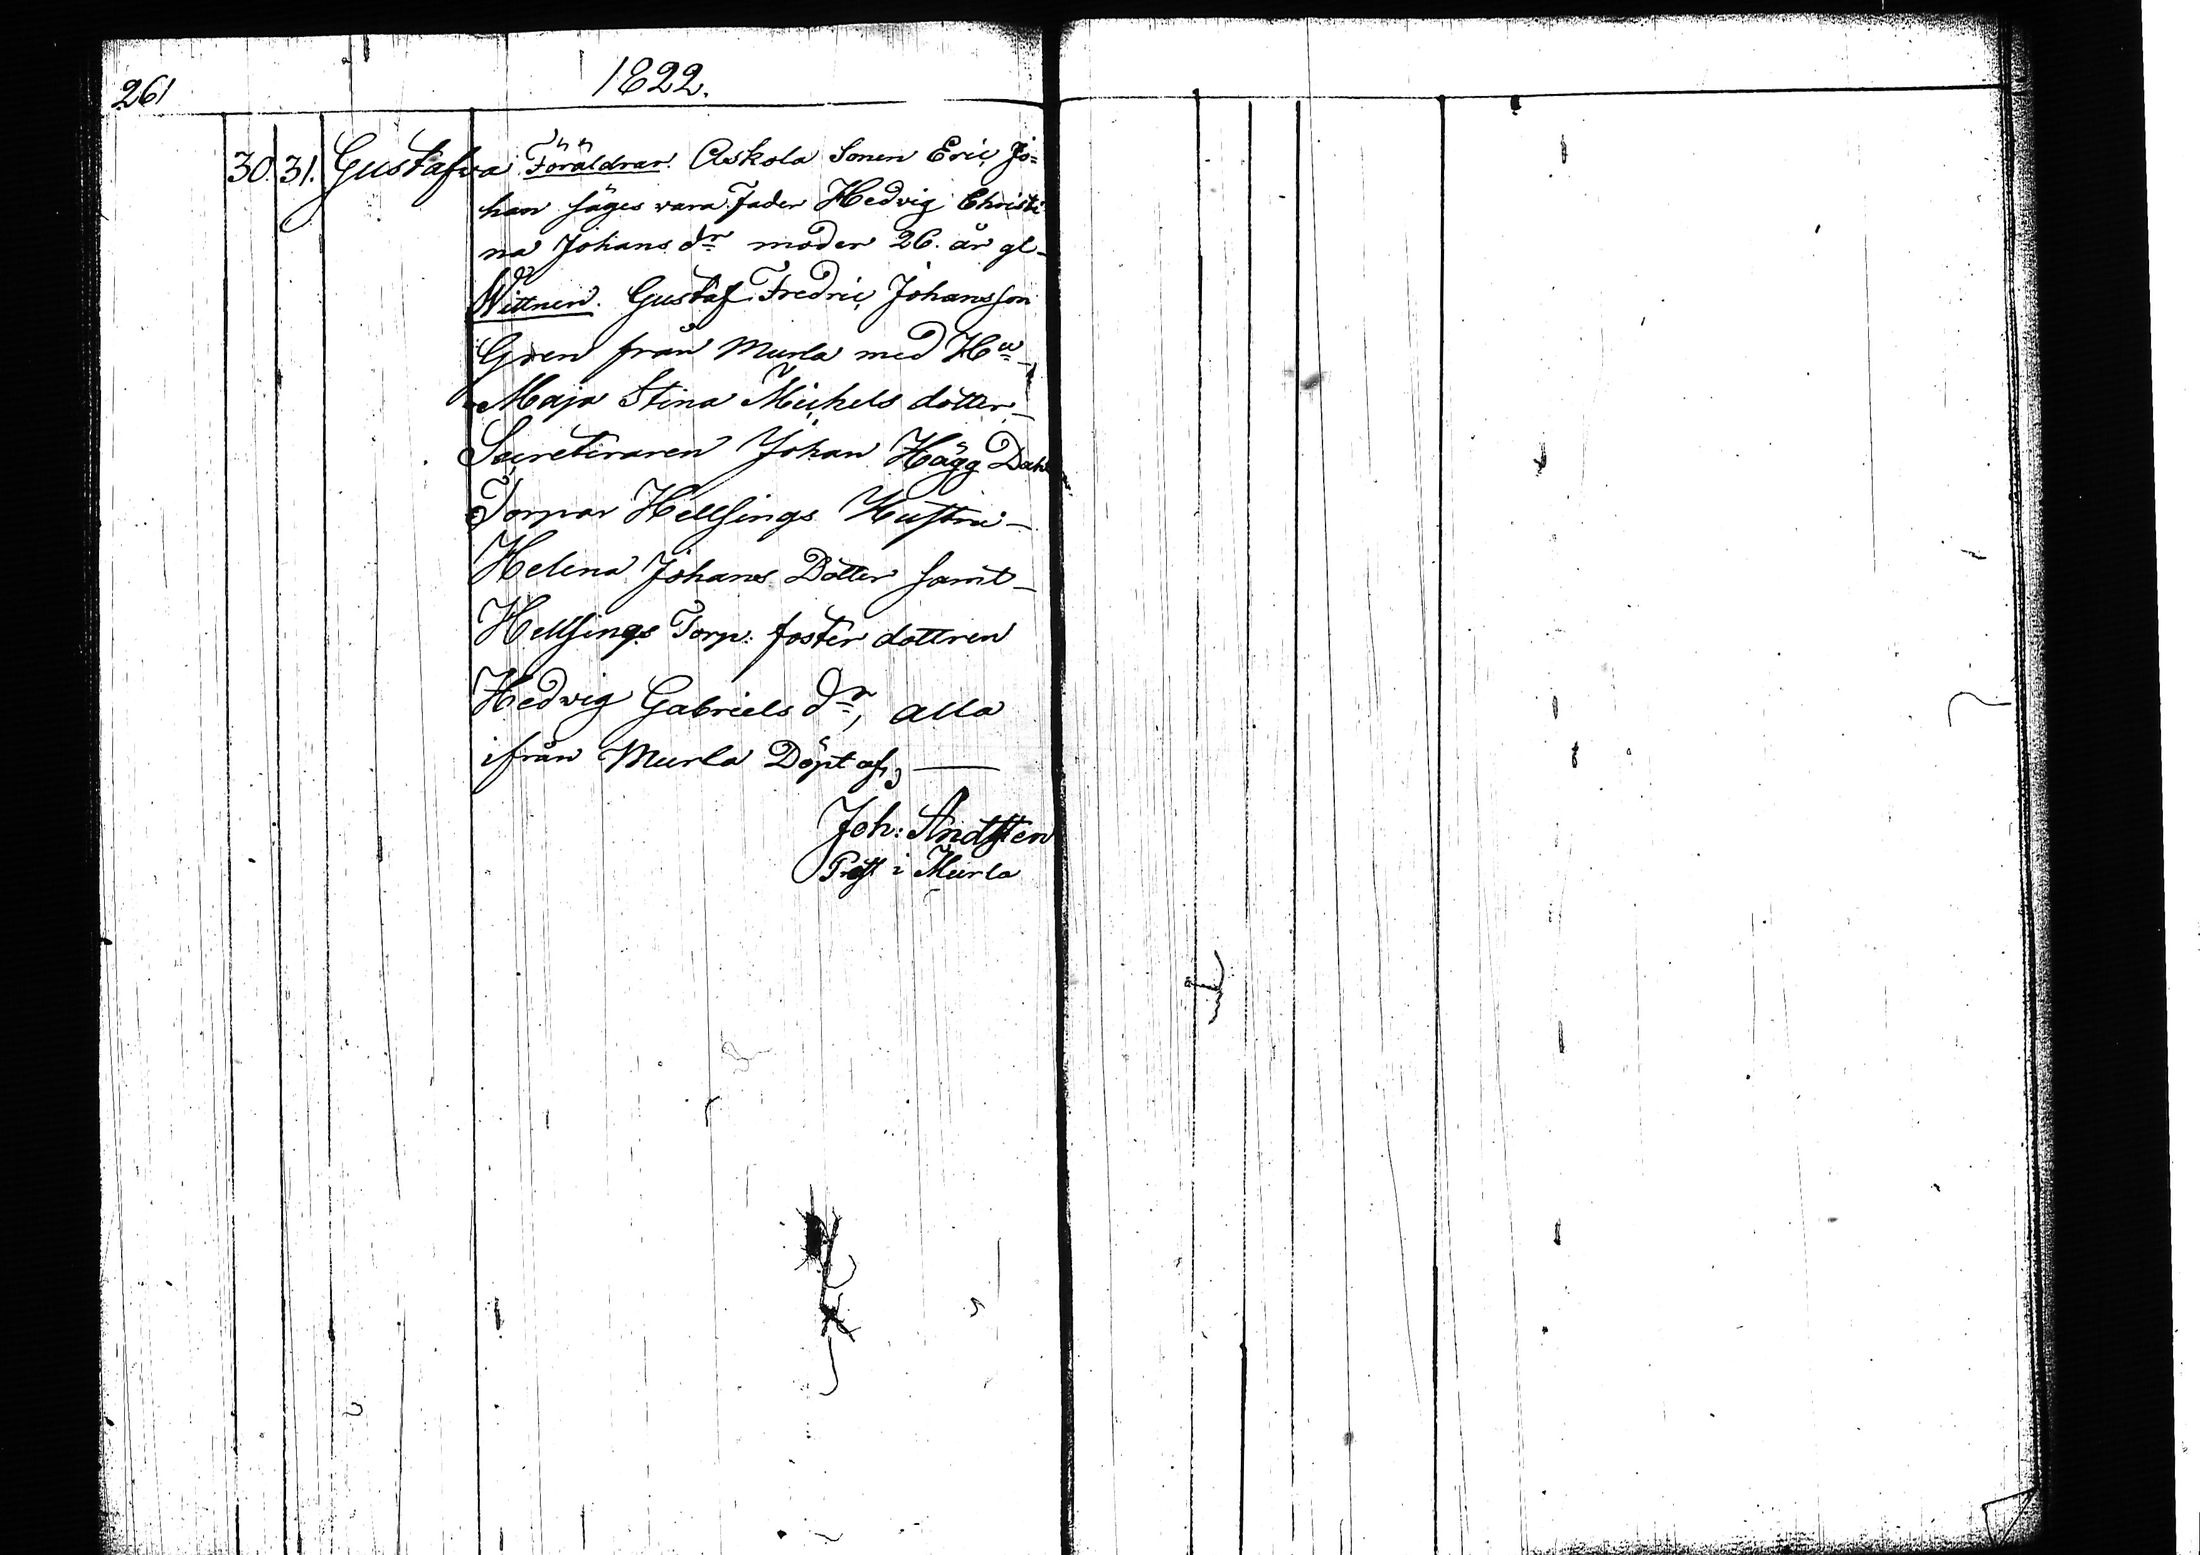 261
1822.
30. 31. Gustafva Föräldrar. Askola Sonen Eric Jo=
han säges vara Fader Hedvig Christi
na Johans dr moder 26. år gl-
Wittnen. Gustaf Fredric Johansson
Gren från Murla med Hu
Maja Stina Michels dotter
Secreteraren Johan Hägg
Torpar Hellsings Hustru
Helena Johans Dotter samt
Hellsings Torp: foster dottren
Hedvig Gabriels dr, alla
ifrån Murla Döpt af,
Joh: Andsten
i Murla